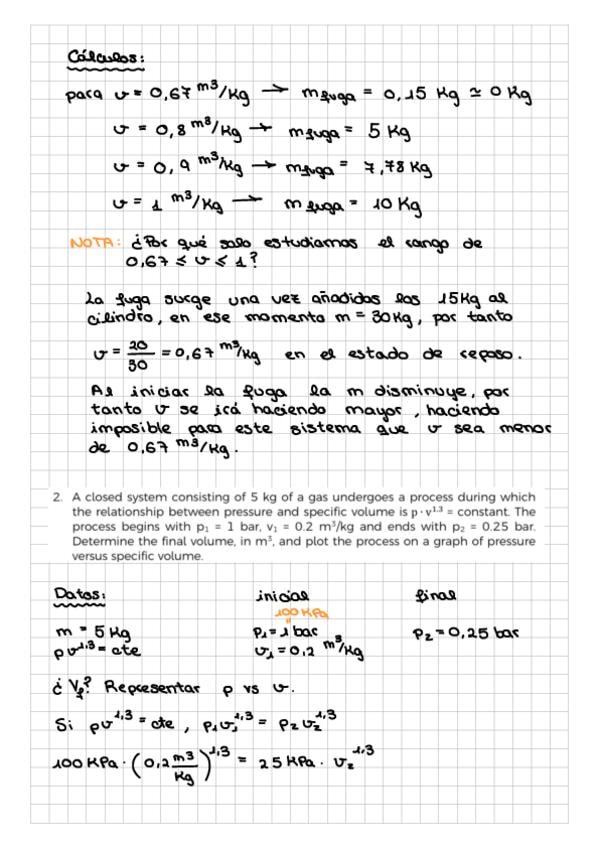 Cálculos:
para v = 0,67 m³/Kg → m fuga = 0,15 Kg ≃ 0 Kg
v = 0,8 m³/Kg → m fuga = 5 Kg
v = 0,9 m³/Kg → m fuga = 7,78 Kg
v = 1 m³/Kg → m fuga = 10 Kg
NOTA: ¿Por qué solo estudiamos el rango de
0,67 ≤ v ≤ 1?
La fuga surge una vez añadidos los 15Kg al
cilindro, en ese momento m = 30Kg, por tanto
v = 20/30 = 0,67 m³/Kg en el estado de reposo.
Al iniciar la fuga la m disminuye, por
tanto v se irá haciendo mayor, haciendo
imposible para este sistema que v sea menor
de 0,67 m³/Kg.
2. A closed system consisting of 5 kg of a gas undergoes a process during which
the relationship between pressure and specific volume is p · v^1.3 = constant. The
process begins with p₁ = 1 bar, v₁ = 0.2 m³/kg and ends with p₂ = 0.25 bar.
Determine the final volume, in m³, and plot the process on a graph of pressure
versus specific volume.
Datos: inicial final
100 KPa
m = 5 Kg P₁ = 1 bar P₂ = 0,25 bar
pv^1,3 = cte v₁ = 0,2 m³/Kg
¿Vf? Representar p vs v.
Si pv^1,3 = cte, p₁v₁^1,3 = p₂v₂^1,3
100 KPa · (0,2 m³/Kg)^1,3 = 25 KPa · v₂^1,3